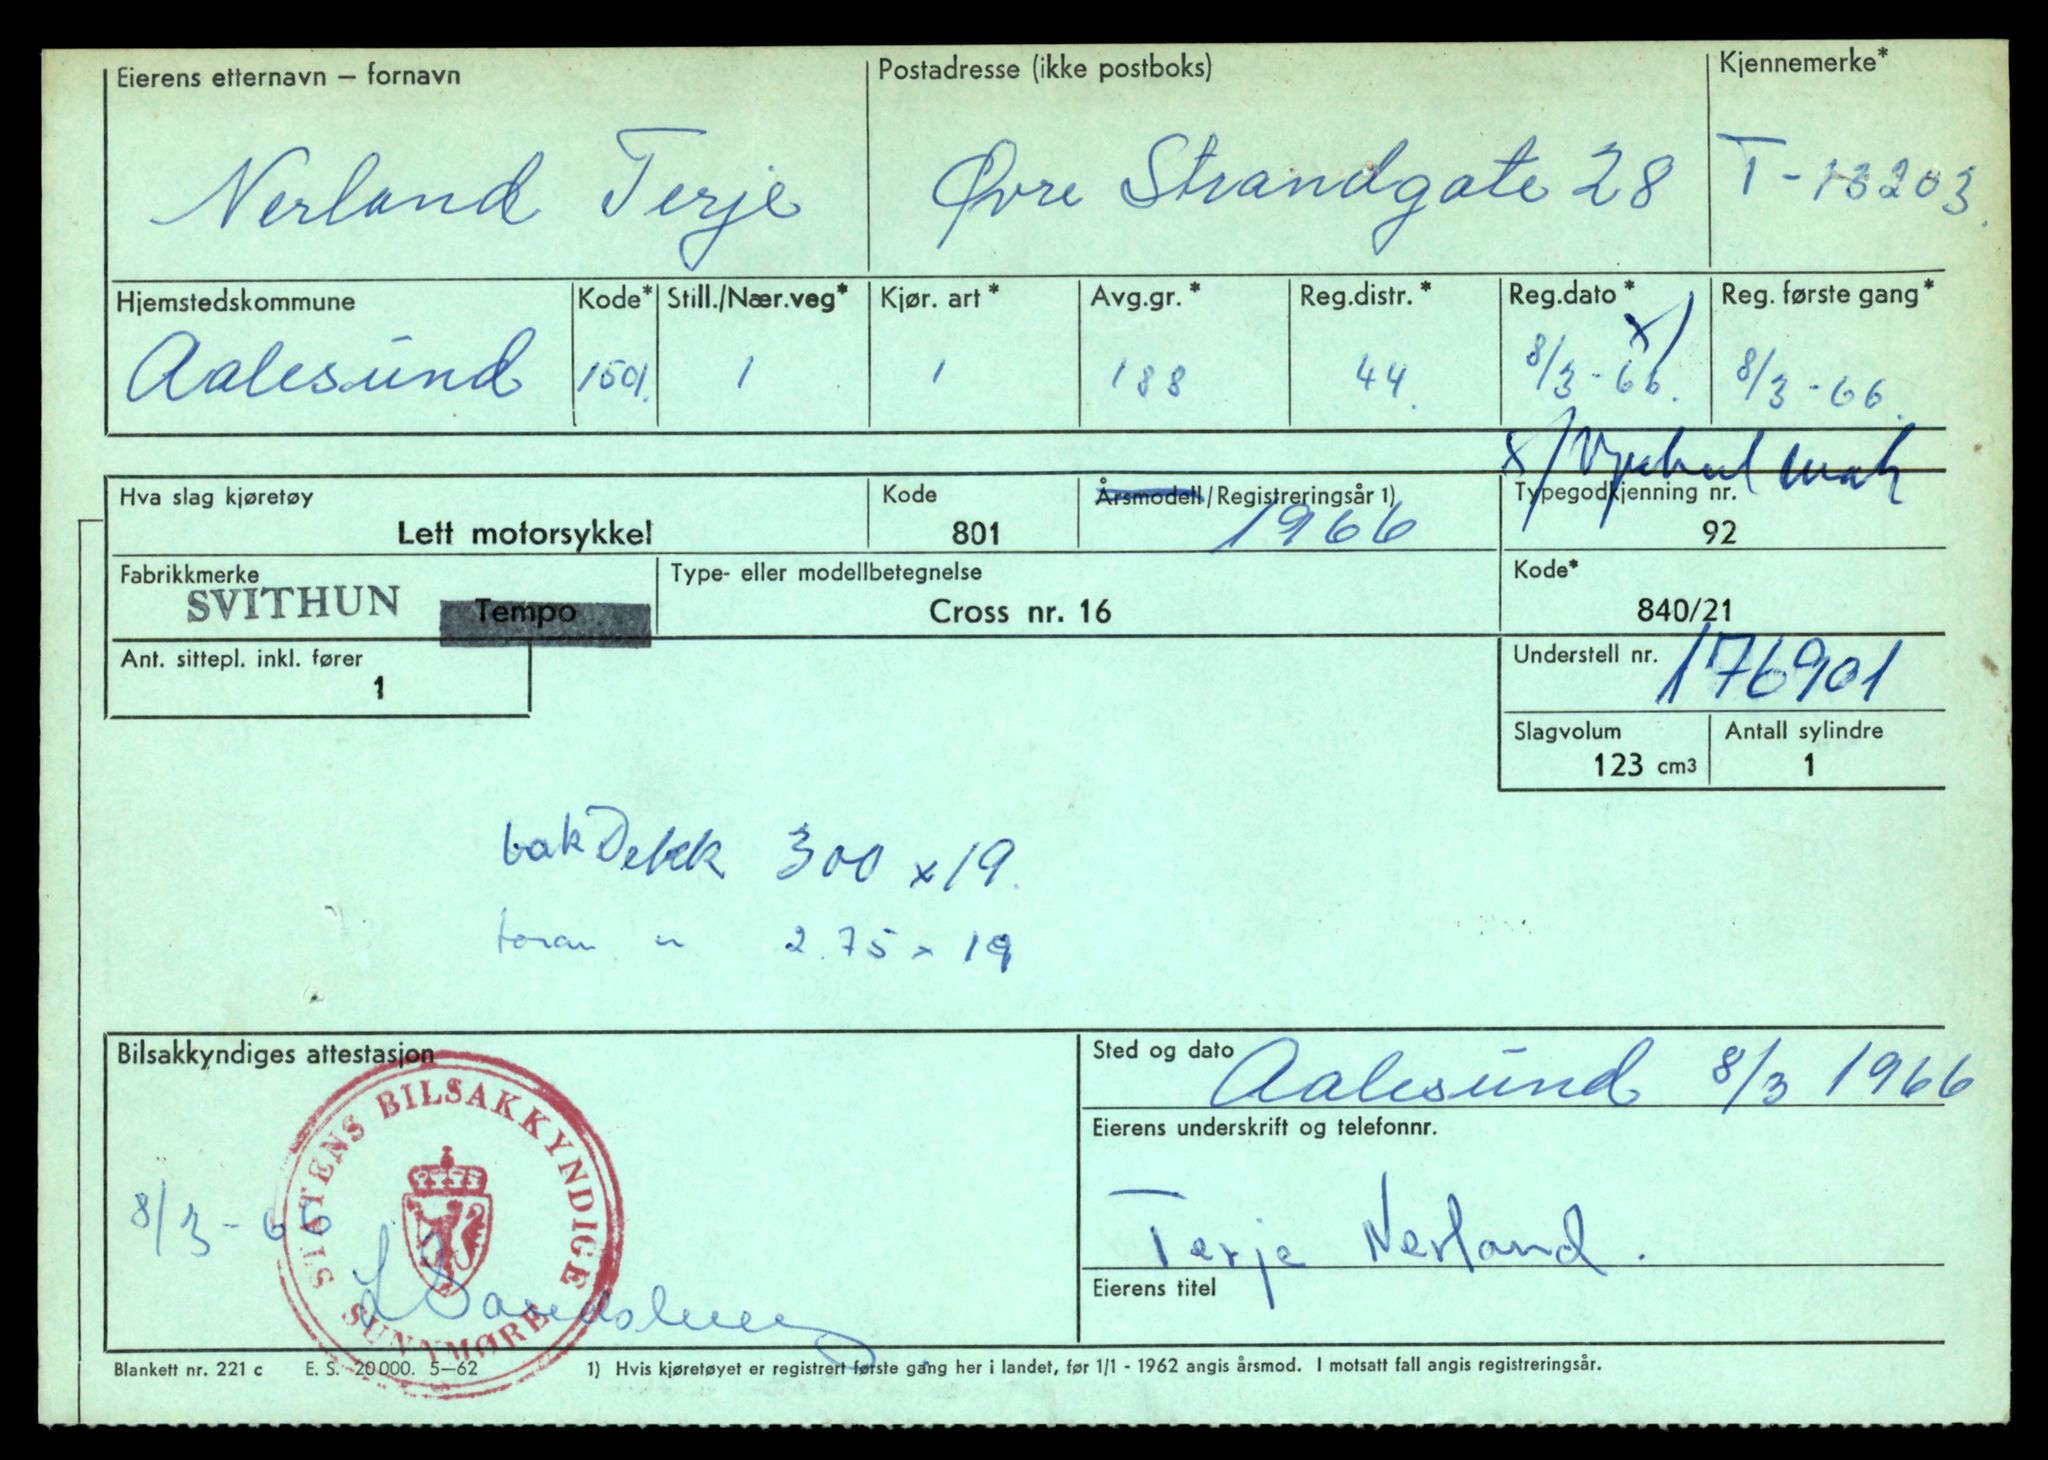 Eierens etternavn – fornavn Postadresse (ikke postboks) Kjennemerke*
Nerland Terje Øvre Strandgate 28 T-13203.
Hjemstedskommune Kode* Still./Nær.veg* Kjør. art* Avg.gr.* Reg.distr.* Reg.dato* Reg. første gang*
x/
Aalesund 1501. 1 1 188 44. 8/3-66. 8/3-66.
x/
Hva slag kjøretøy Kode Årsmodell/Registreringsår 1) Typegodkjenning nr.
Lett motorsykkel 801 1966 92
Fabrikkmerke Type- eller modellbetegnelse Kode*
SVITHUN Tempo Cross nr. 16 840/21
Ant. sittepl. inkl. fører Understell nr.
1 176901
Slagvolum Antall sylindre
123 cm3 1
bak Dekk 300 x 19.
foran " 2.75 x 19
Bilsakkyndiges attestasjon Sted og dato
Aalesund 8/3 1966
STATENS BILSAKKYNDIGE
SUNNMØRE
Eierens underskrift og telefonnr.
8/3-66 Terje Nerland.
Eierens titel
Blankett nr. 221 c E. S. 20000. 5–62 1) Hvis kjøretøyet er registrert første gang her i landet, før 1/1 - 1962 angis årsmod. I motsatt fall angis registreringsår.